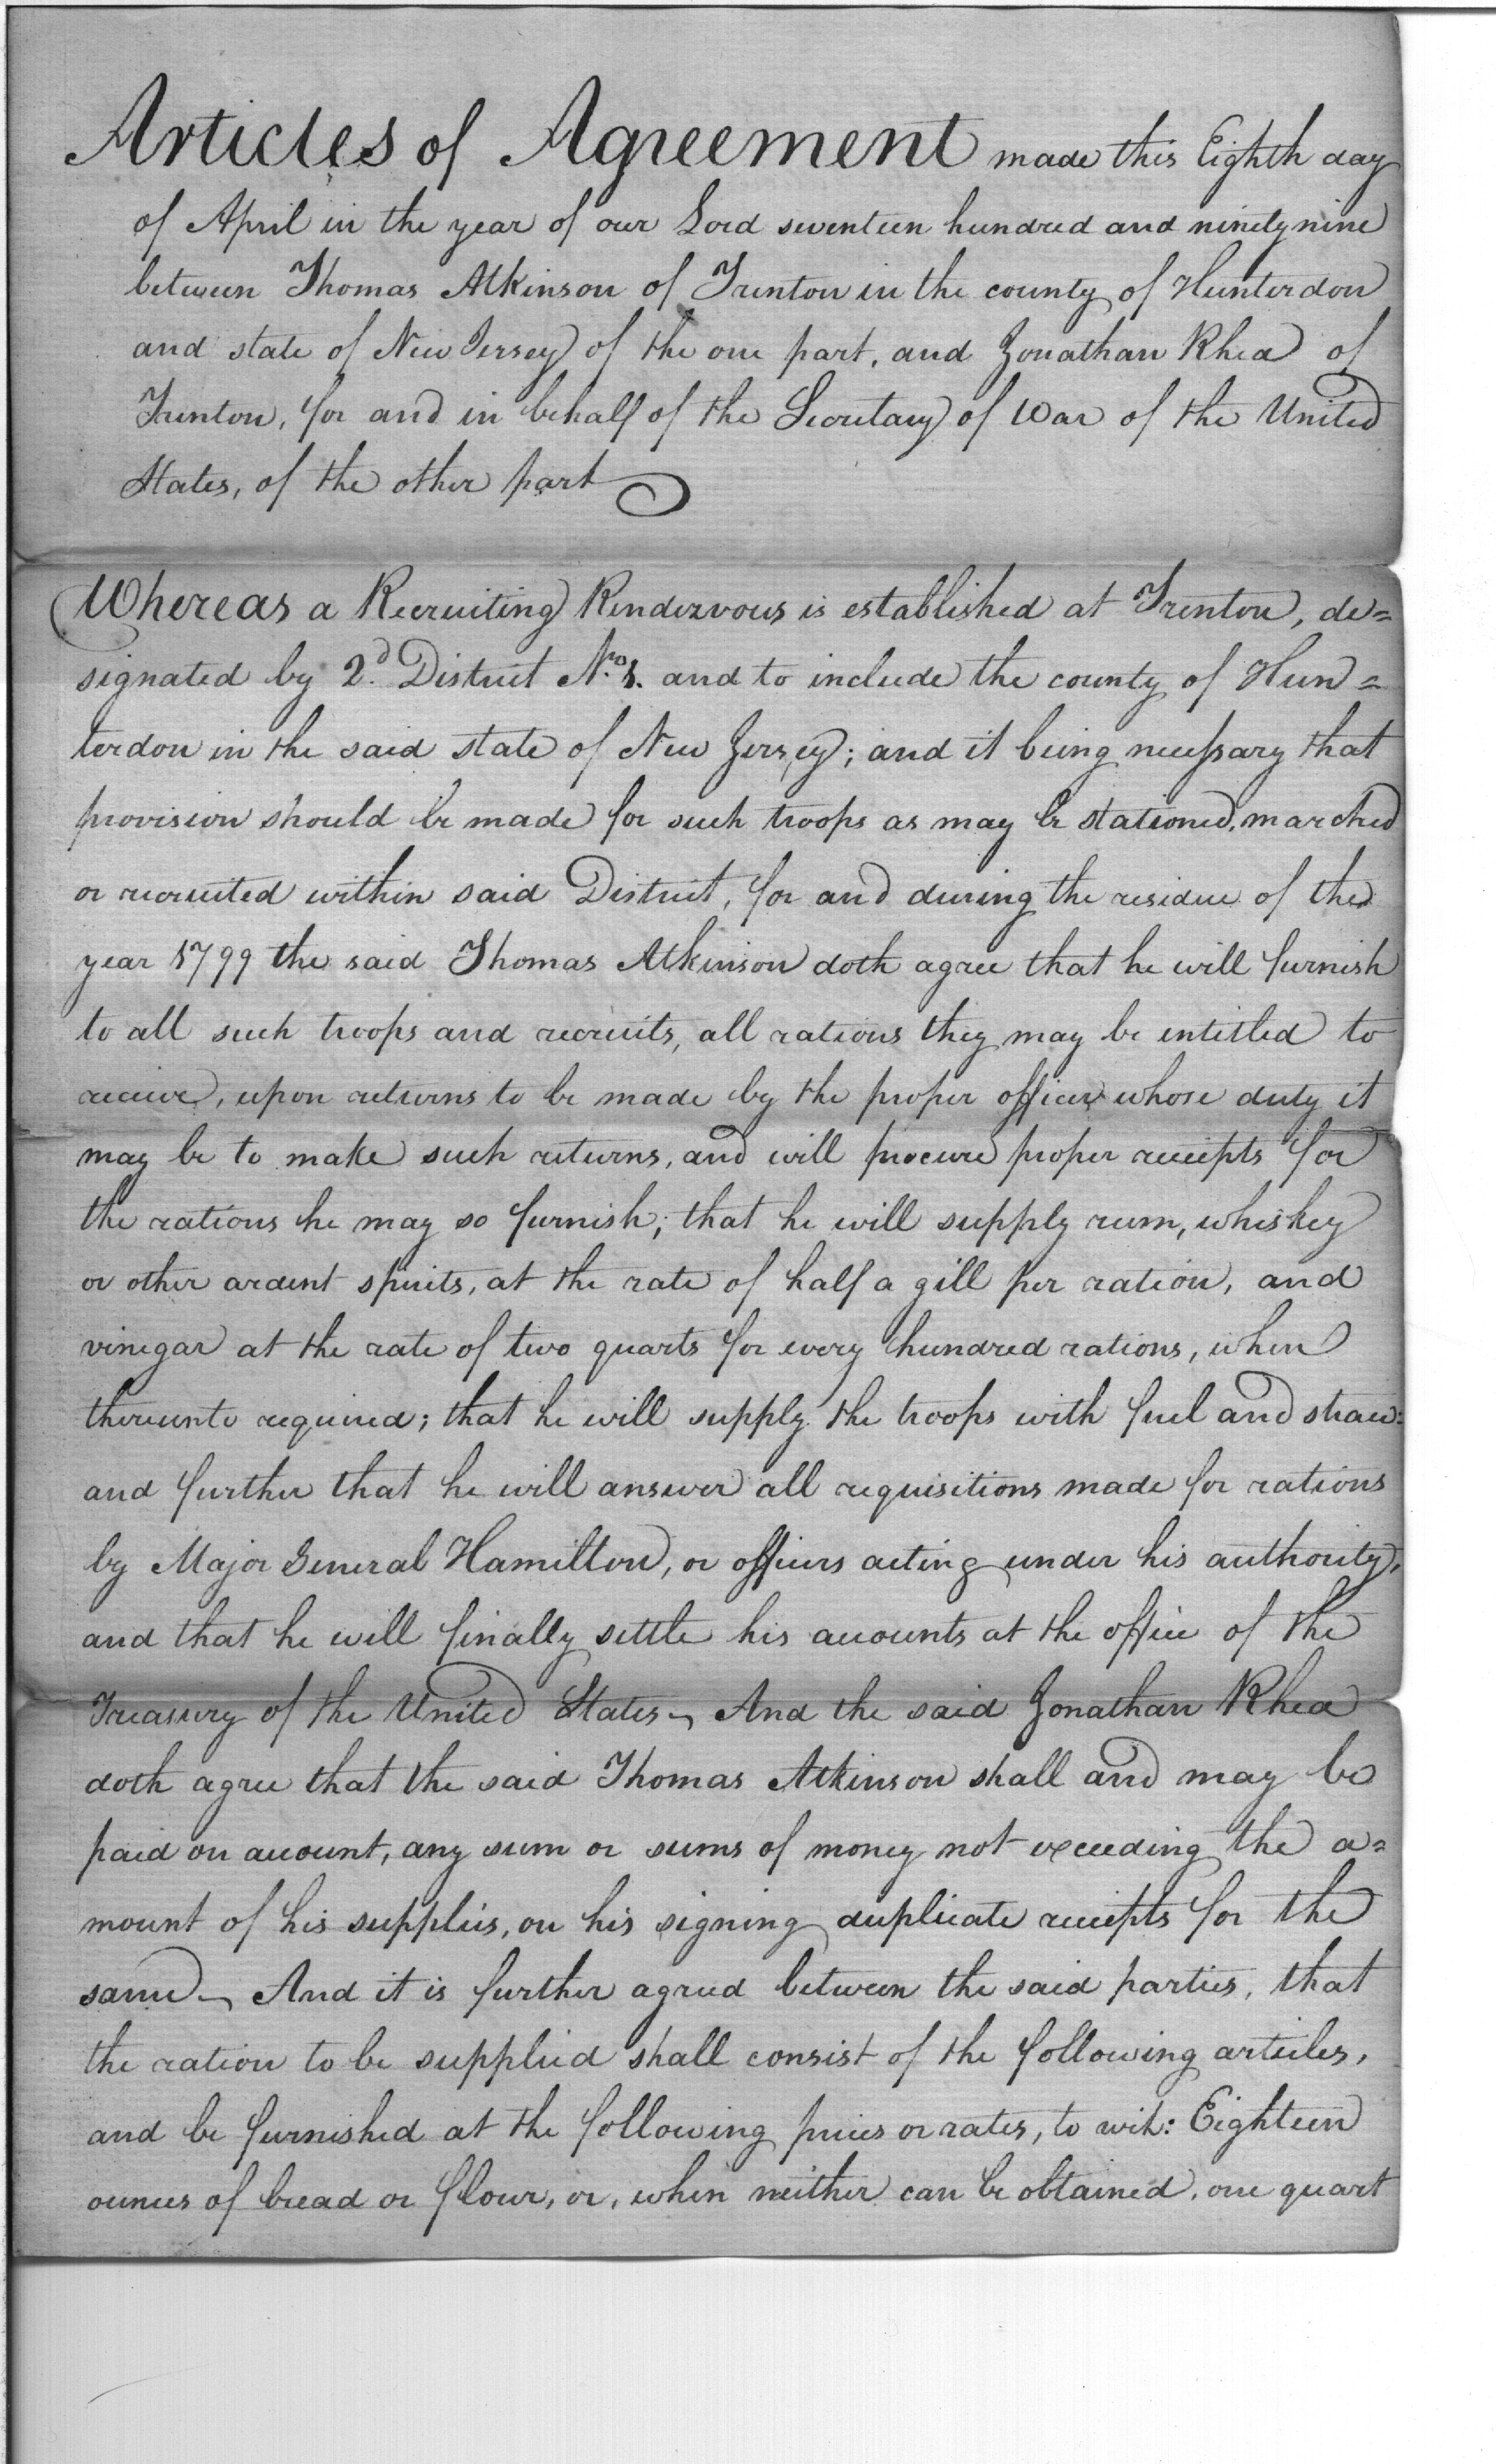 Articles of Agreement made this Eighth day
of April in the year of our Lord seventeen hundred and ninety nine
between Thomas Atkinson of Trenton in the county of Hunterdon
and state of New Jersey of the one part, and Jonathan Rhea of
Trenton, for and in behalf of the Secretary of War of the United
States, of the other part
Whereas a Recruiting Rendezvous is established at Trenton, de=
signated by 2.d District No. 1. and to include the county of Hun=
terdon in the said state of New Jersey; and it being necessary that
provision should be made for such troops as may be stationed, marched
or recruited within said District, for and during the residue of the
year 1799 the said Thomas Atkinson doth agree that he will furnish
to all such troops and recruits, all rations they may be entitled to
receive, upon returns to be made by the proper officer whose duty it
may be to make such returns, and will procure proper receipts for
the rations he may so furnish; that he will supply rum, whiskey
or other ardent spirits, at the rate of half a gill per ration, and
vinegar at the rate of two quarts for every hundred rations, when
thereunto required; that he will supply the troops with fuel and straw:
and further that he will answer all requisitions made for rations
by Major General Hamilton, or officers acting under his authority,
and that he will finally settle his accounts at the office of the
Treasury of the United States - And the said Jonathan Rhea
doth agree that the said Thomas Atkinson shall and may be
paid on account, any sum or sums of money not exceeding the a=
mount of his supplies, on his signing duplicate receipts for the
same - And it is further agreed between the said parties, that
the ration to be supplied shall consist of the following articles,
and be furnished at the following prices or rates, to wit: Eighteen
ounces of bread or flour, or, when neither can be obtained, one quart